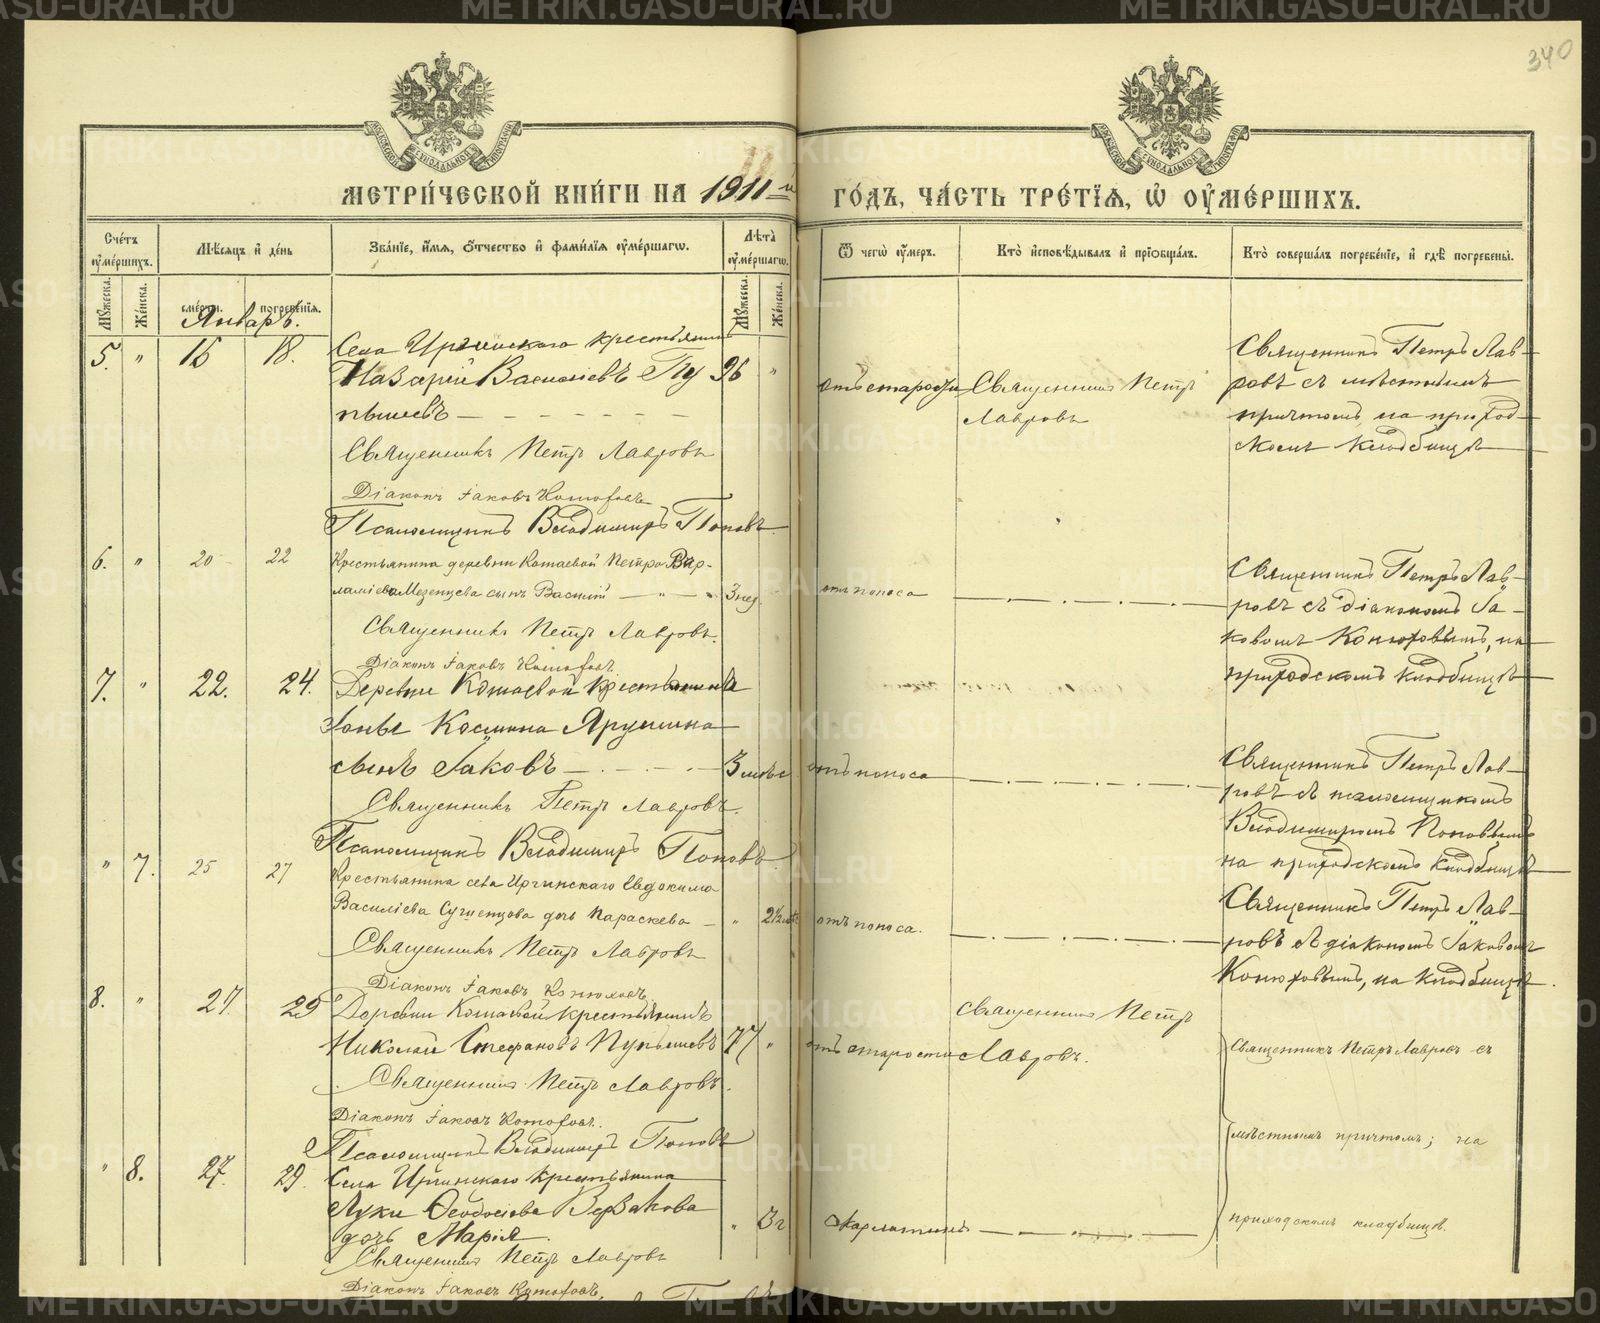 340
МЕТРИЧЕСКОЙ КНИГИ НА 1911 й ГОДЪ, ЧАСТЬ ТРЕТІЯ, Ѡ ОУМЕРШИХЪ.
Счетъ оумершихъ.
Мѣсяцъ и день
Званіе, имя, отчество и фамилія оумершагѡ.
Лѣта оумершагѡ.
Ѿ чегѡ оумеръ.
Кто исповѣдывалъ и пріобщалъ.
Кто совершалъ погребеніе, и гдѣ погребены.
Мужеска.
Женска.
смерти.
погребенія.
Мужеска.
Женска.
Январь.
5. " 16 18.
Села Иргинскаго крестьянинъ
Назарій Васильевъ Пу
пышевъ
96 "
отъ старости
Священникъ Петръ
Лавровъ
Священникъ Петръ Лав-
ровъ съ мѣстнымъ
причтомъ на приход-
скомъ кладбищѣ
Священникъ Петръ Лавровъ
Діаконъ Іаковъ Конюховъ
Псаломщикъ Владимиръ Поповъ
6. " 20 22
Крестьянина деревни Коташевой Петра Вар-
ламіева Мезенцева сынъ Василій
3 нед.
отъ поноса
Священникъ Петръ Лав-
ровъ съ діакономъ Іа-
ковомъ Конюховымъ, на
приходскомъ кладбищѣ
Священникъ Петръ Лавровъ.
Діаконъ Іаковъ Конюховъ.
7. " 22. 24.
Деревни Коташевой крестьянина
Іоны Космина Ярушина
сынъ Іаковъ
3 мѣс
отъ поноса
Священникъ Петръ Лав-
ровъ съ псаломщикомъ
Владимиромъ Поповымъ
на приходскомъ кладбищѣ
Священникъ Петръ Лавровъ.
Псаломщикъ Владимиръ Поповъ
" 7. 25 27
Крестьянина села Иргинскаго Евдокима
Василіева Сушенцова дочь Параскева
" 2½ мѣс
отъ поноса.
Священникъ Петръ Лав-
ровъ съ діакономъ Іаковомъ
Конюховымъ, на кладбищѣ.
Священникъ Петръ Лавровъ
Діаконъ Іаковъ Конюховъ
8. " 27. 29
Деревни Коташевой крестьянинъ
Николай Стефановъ Пупышевъ
77 "
отъ старости
Священникъ Петръ
Лавровъ.
Священникъ Петръ Лавровъ съ
мѣстнымъ причтомъ; на
приходскомъ кладбищѣ.
Священникъ Петръ Лавровъ.
Діаконъ Іаковъ Конюховъ.
Псаломщикъ Владимиръ Поповъ
" 8. 27. 29.
Села Иргинскаго крестьянина
Луки Ѳеодосіева
дочь Марія.
" 3 г
Скарлатина
Священникъ Петръ Лавровъ
Діаконъ Іаковъ Конюховъ.
METRIKI.GASO-URAL.RU